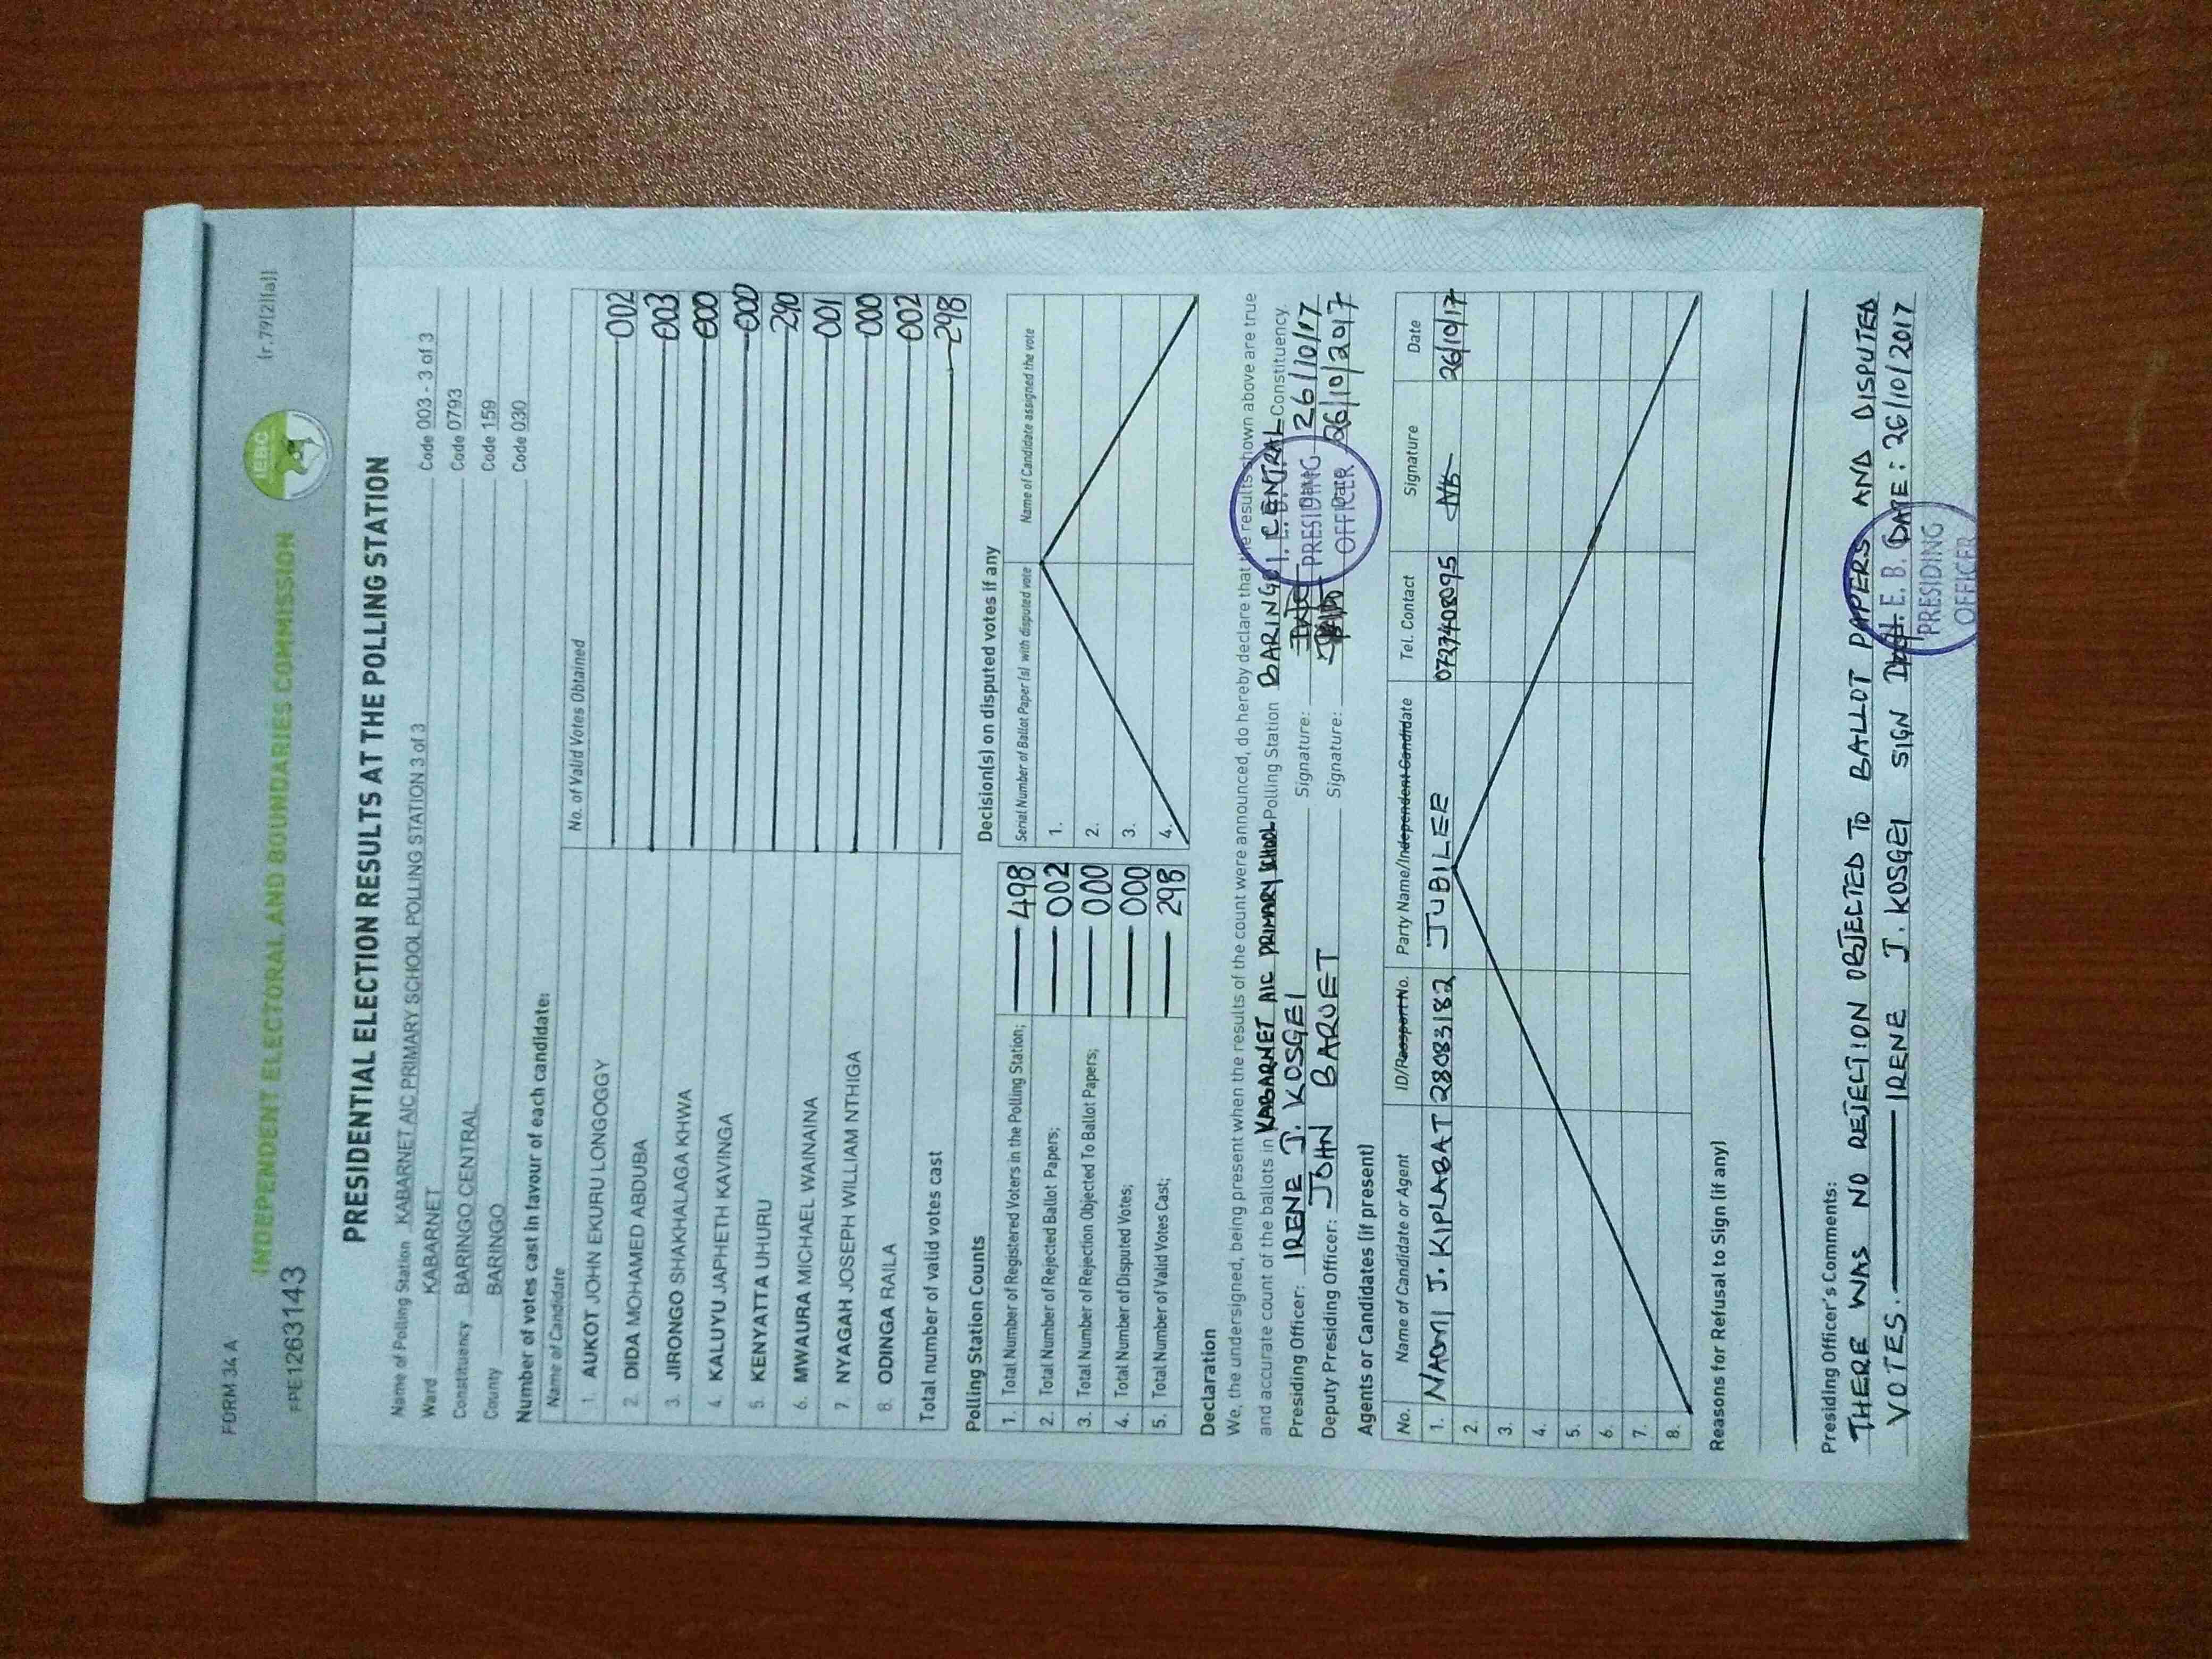 FORM 34 A (r.79(2)(a))
INDEPENDENT ELECTORAL AND BOUNDARIES COMMISSION
IEBC
PE1263143
PRESIDENTIAL ELECTION RESULTS AT THE POLLING STATION
Name of Polling Station KABARNET AIC PRIMARY SCHOOL POLLING STATION 3 of 3 Code 003 - 3 of 3
Ward KABARNET Code 0793
Constituency BARINGO CENTRAL Code 159
County BARINGO Code 030
Number of votes cast in favour of each candidate:
Name of Candidate No. of Valid Votes Obtained
1. AUKOT JOHN EKURU LONGOGGY 002
2. DIDA MOHAMED ABDUBA 003
3. JIRONGO SHAKHALAGA KHWA 000
4. KALUYU JAPHETH KAVINGA 000
5. KENYATTA UHURU 290
6. MWAURA MICHAEL WAINAINA 001
7. NYAGAH JOSEPH WILLIAM NTHIGA 000
8. ODINGA RAILA 002
Total number of valid votes cast 298
Polling Station Counts
1. Total Number of Registered Voters in the Polling Station; 498
2. Total Number of Rejected Ballot Papers; 002
3. Total Number of Rejection Objected To Ballot Papers; 000
4. Total Number of Disputed Votes; 000
5. Total Number of Valid Votes Cast; 298
Decision(s) on disputed votes if any
Serial Number of Ballot Paper(s) with disputed vote Name of Candidate assigned the vote
1.
2.
3.
4.
Declaration
We, the undersigned, being present when the results of the count were announced, do hereby declare that the results shown above are true
and accurate count of the ballots in KABARNET AIC PRIMARY SCHOOL Polling Station BARINGO CENTRAL Constituency.
Presiding Officer: IRENE J. KOSGEI Signature: Date 26/10/17
Deputy Presiding Officer: JOHN BARUET Signature: Date 26/10/2017
PRESIDING
OFFICER
Agents or Candidates (if present)
No. Name of Candidate or Agent ID/Passport No. Party Name/Independent Candidate Tel. Contact Signature Date
1. NAOMI J. KIPLABAT 28083182 JUBILEE 0727408095 NK 26/10/17
2.
3.
4.
5.
6.
7.
8.
Reasons for Refusal to Sign (if any)
Presiding Officer's Comments:
THERE WAS NO REJECTION OBJECTED TO BALLOT PAPERS AND DISPUTED
VOTES. IRENE J. KOSGEI SIGN DATE: 26/10/2017
I. E. B. C
PRESIDING
OFFICER